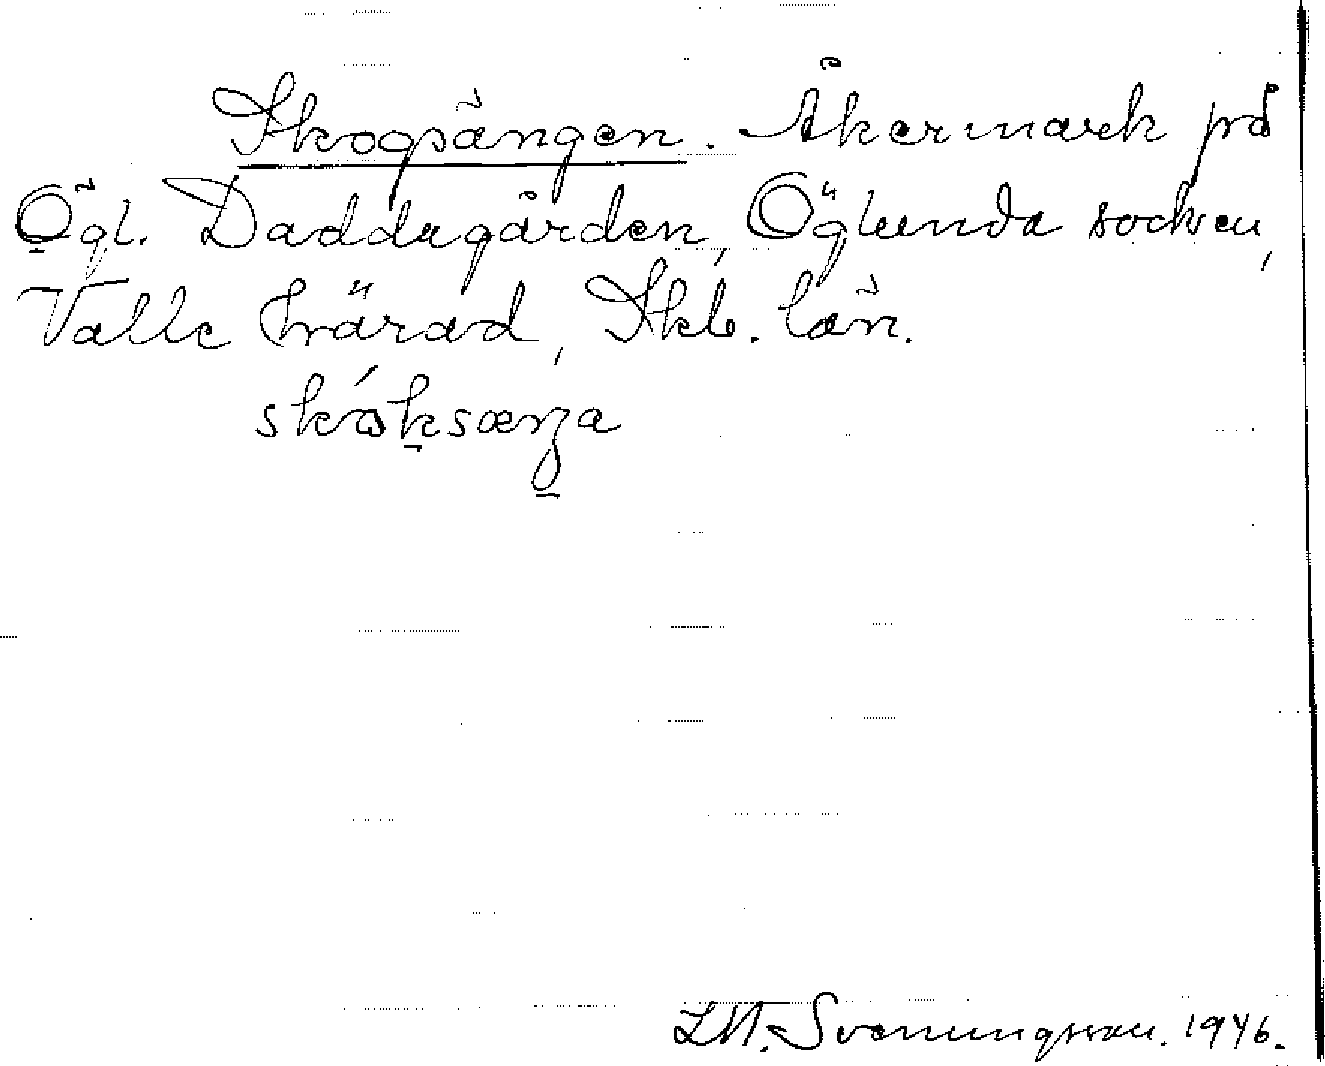 Skogsängen. Åkermark på
Ögl. Daddagården, Öglunda socken,
Valle härad, Skb. län.
skóksæŋa
L.M. Svenungsson. 1946.